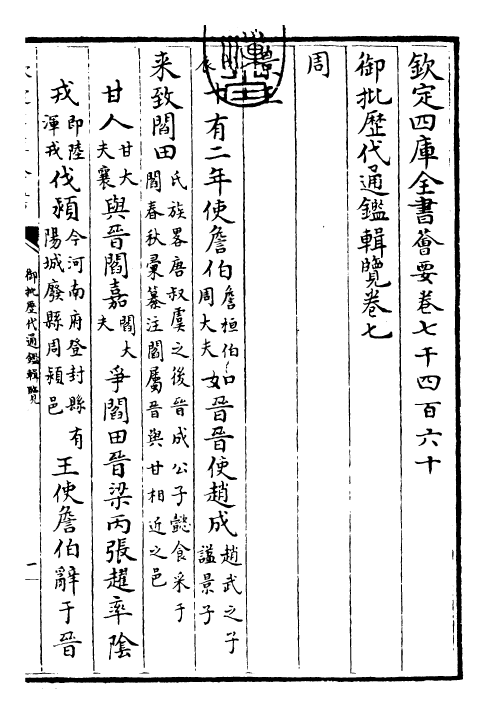 欽定四庫全書薈要卷七千四百六十
御批歷代通鑑輯覽卷七
周
景王
十有二年使詹伯詹桓伯周大夫如晉晉使趙成趙武之子諡景子
来致閻田氏族畧唐叔虞之後晉成公子懿食采于閻春秋彙纂注閻屬晉與甘相近之邑
甘人甘大夫襄與晉閻嘉閻大夫爭閻田晉梁丙張趯率陰
戎即陸渾戎伐潁今河南府登封縣有陽城廢縣周潁邑王使詹伯辭于晉
御批歷代通鑑輯覽
一